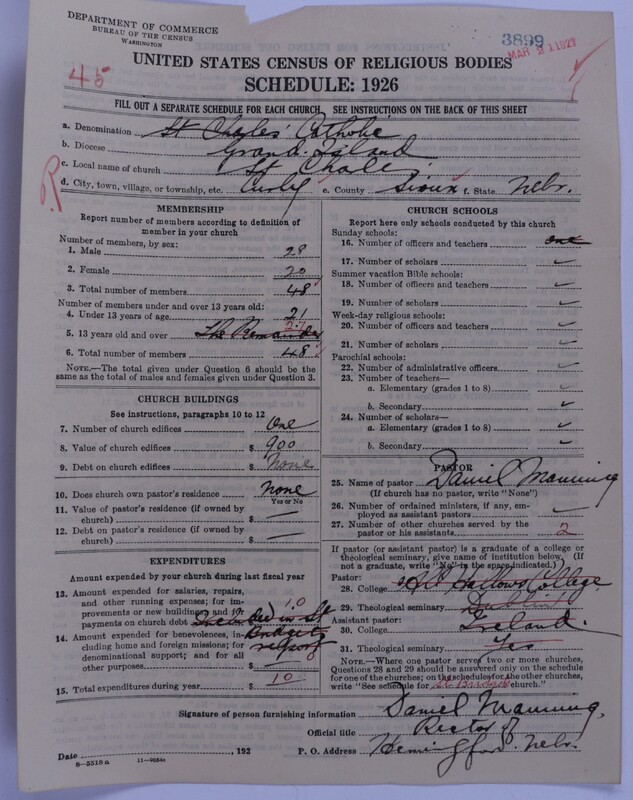 DEPARTMENT OF COMMERCE
BUREAU OF THE CENSUS
WASHINGTON
3899
MAR 21 1927
45
UNITED STATES CENSUS OF RELIGIOUS BODIES
SCHEDULE: 1926
FILL OUT A SEPARATE SCHEDULE FOR EACH CHURCH. SEE INSTRUCTIONS ON THE BACK OF THIS SHEET
a. Denomination St Charles' Catholic
b. Diocese Grand Island
c. Local name of church St Charles
R
d. City, town, village, or township, etc. Curly e. County Sioux f. State Nebr.
MEMBERSHIP
Report number of members according to definition of member in your church
Number of members, by sex:
1. Male 28
2. Female 20
3. Total number of members 48
Number of members under and over 13 years old:
4. Under 13 years of age 21
27
5. 13 years old and over The Remainder
6. Total number of members 48
NOTE.—The total given under Question 6 should be the same as the total of males and females given under Question 3.
CHURCH BUILDINGS
See instructions, paragraphs 10 to 12
7. Number of church edifices One
8. Value of church edifices $ 900
9. Debt on church edifices $ None
10. Does church own pastor's residence none
Yes or No
11. Value of pastor's residence (if owned by church) $ —
12. Debt on pastor's residence (if owned by church) $ —
EXPENDITURES
Amount expended by your church during last fiscal year
13. Amount expended for salaries, repairs, and other running expenses; for improvements or new building; and for payments on church debt 10 Included in St
14. Amount expended for benevolences, including home and foreign missions; for denominational support; and for all other purposes $ — Bridget's report
15. Total expenditures during year $ 10
CHURCH SCHOOLS
Report here only schools conducted by this church
Sunday schools:
16. Number of officers and teachers one
17. Number of scholars
Summer vacation Bible schools:
18. Number of officers and teachers
19. Number of scholars
Week-day religious schools:
20. Number of officers and teachers
21. Number of scholars
Parochial schools:
22. Number of administrative officers
23. Number of teachers—
a. Elementary (grades 1 to 8)
b. Secondary
24. Number of scholars—
a. Elementary (grades 1 to 8)
b. Secondary
PASTOR
25. Name of pastor Daniel Manning
(If church has no pastor, write "None")
26. Number of ordained ministers, if any, employed as assistant pastors
27. Number of other churches served by the pastor or his assistants 2
If pastor (or assistant pastor) is a graduate of a college or theological seminary, give name of institution below. (If not a graduate, write "No" in the space indicated.)
Pastor:
28. College All Hallows College
29. Theological seminary Dublin
Assistant pastor:
30. College Ireland.
31. Theological seminary Yes
NOTE.—Where one pastor serves two or more churches, Questions 28 and 29 should be answered only on the schedule for one of the churches; on the schedules for the other churches, write "See schedule for St. Bridget's church."
Signature of person furnishing information Daniel Manning,
Official title Rector of
Date , 192 P. O. Address Hemingford. Nebr.
8—5518 a 11—9554